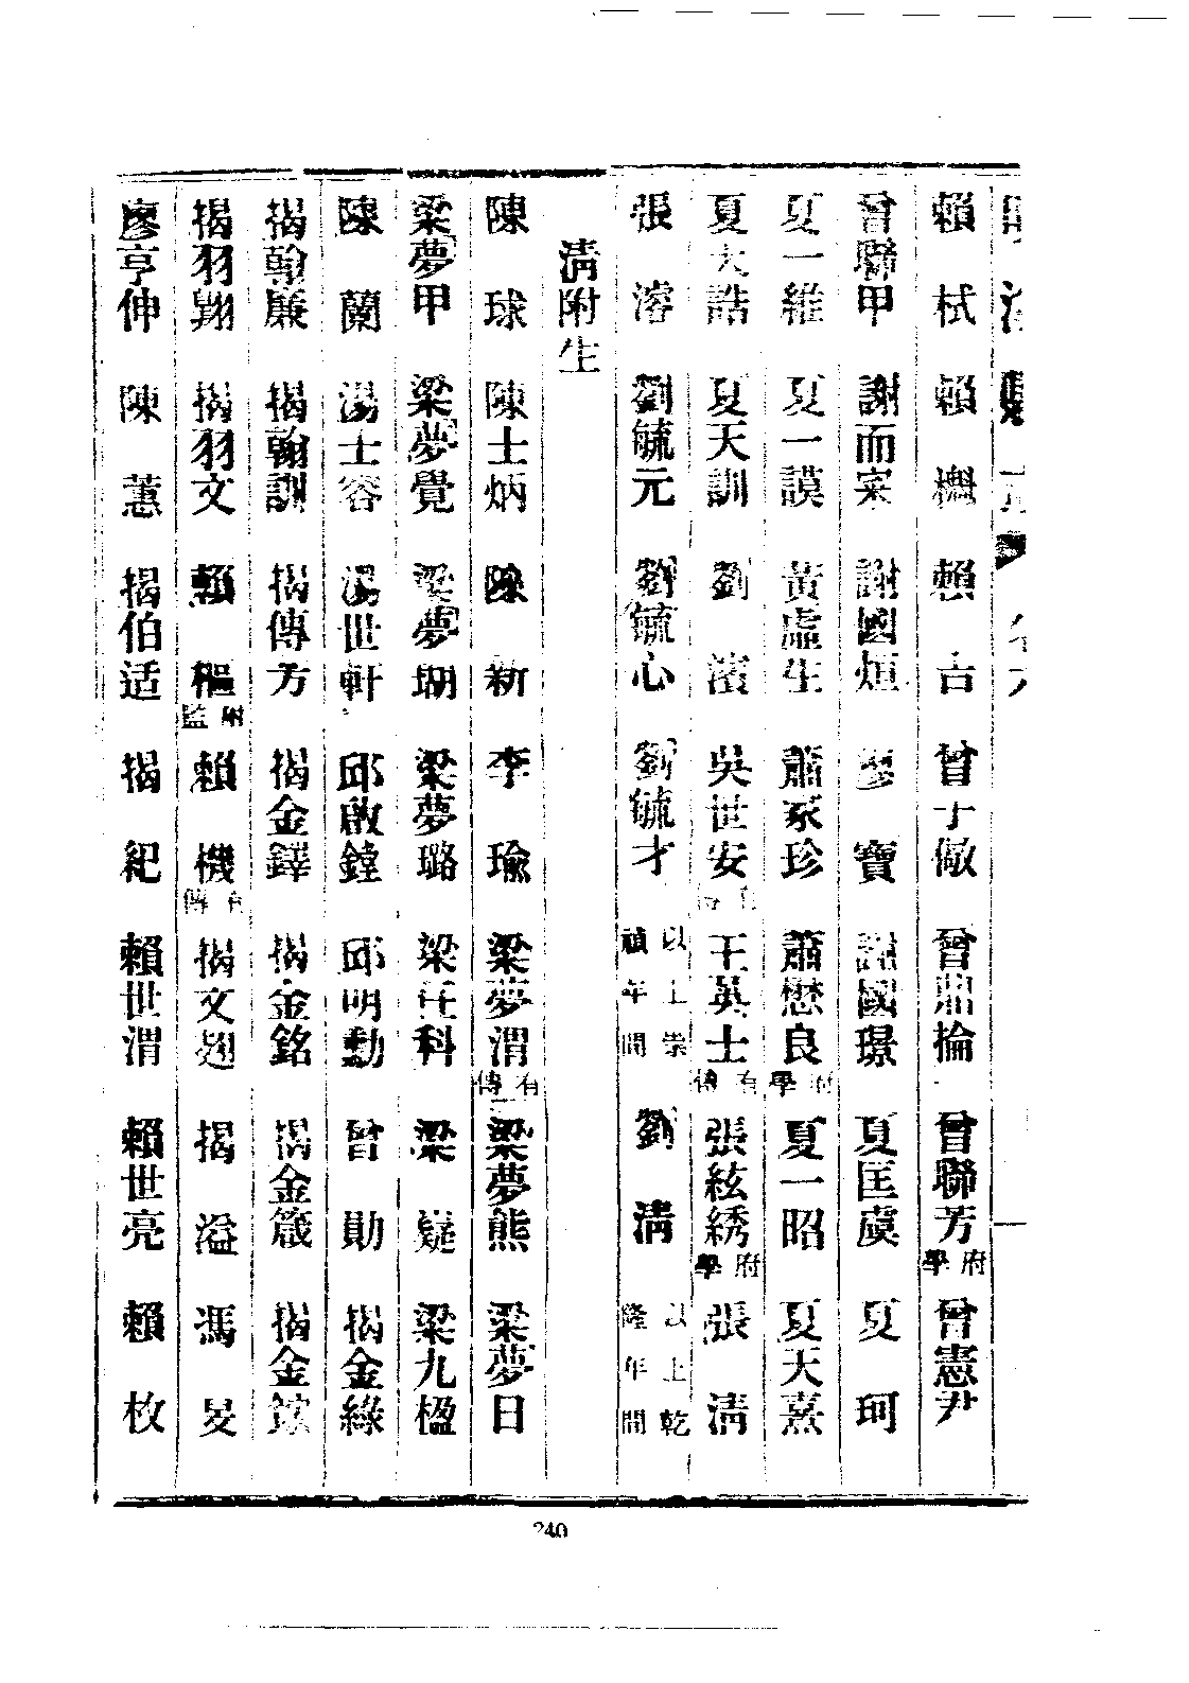 賴杙 賴櫚 賴古 曾于儆 曾鼎掄 曾聯芳府學 曾憲尹
曾聯甲 謝而寀 謝國烜 廖寶 謝國璟 夏匡虞 夏珂
夏一維 夏一謨 黃虛生 蕭家珍 蕭懋良府學 夏一昭 夏天熹
夏大誥 夏天訓 劉濱 吳世安 王英士有傳 張絃綉府學 張淸
張溶 劉毓元 劉毓心 劉毓才 以上崇禎年間 劉淸 以上乾隆年間
淸附生
陳球 陳士炳 陳新 李瑜 梁夢渭有傳 梁夢熊 梁夢日
梁夢甲 梁夢覺 梁夢瑚 梁夢璐 梁任科 梁嶷 梁九楹
陳蘭 湯士容 湯世軒 邱啟鐘 邱明勳 曾勛 揭金綠
揭翰廉 揭翰訓 揭傳方 揭金鐸 揭金銘 揭金箴 揭金
揭羽翔 揭羽文 賴樞附監 賴機有傳 揭文翅 揭溢 馮旻
廖亨伸 陳蕙 揭伯适 揭紀 賴世渭 賴世亮 賴枚
240